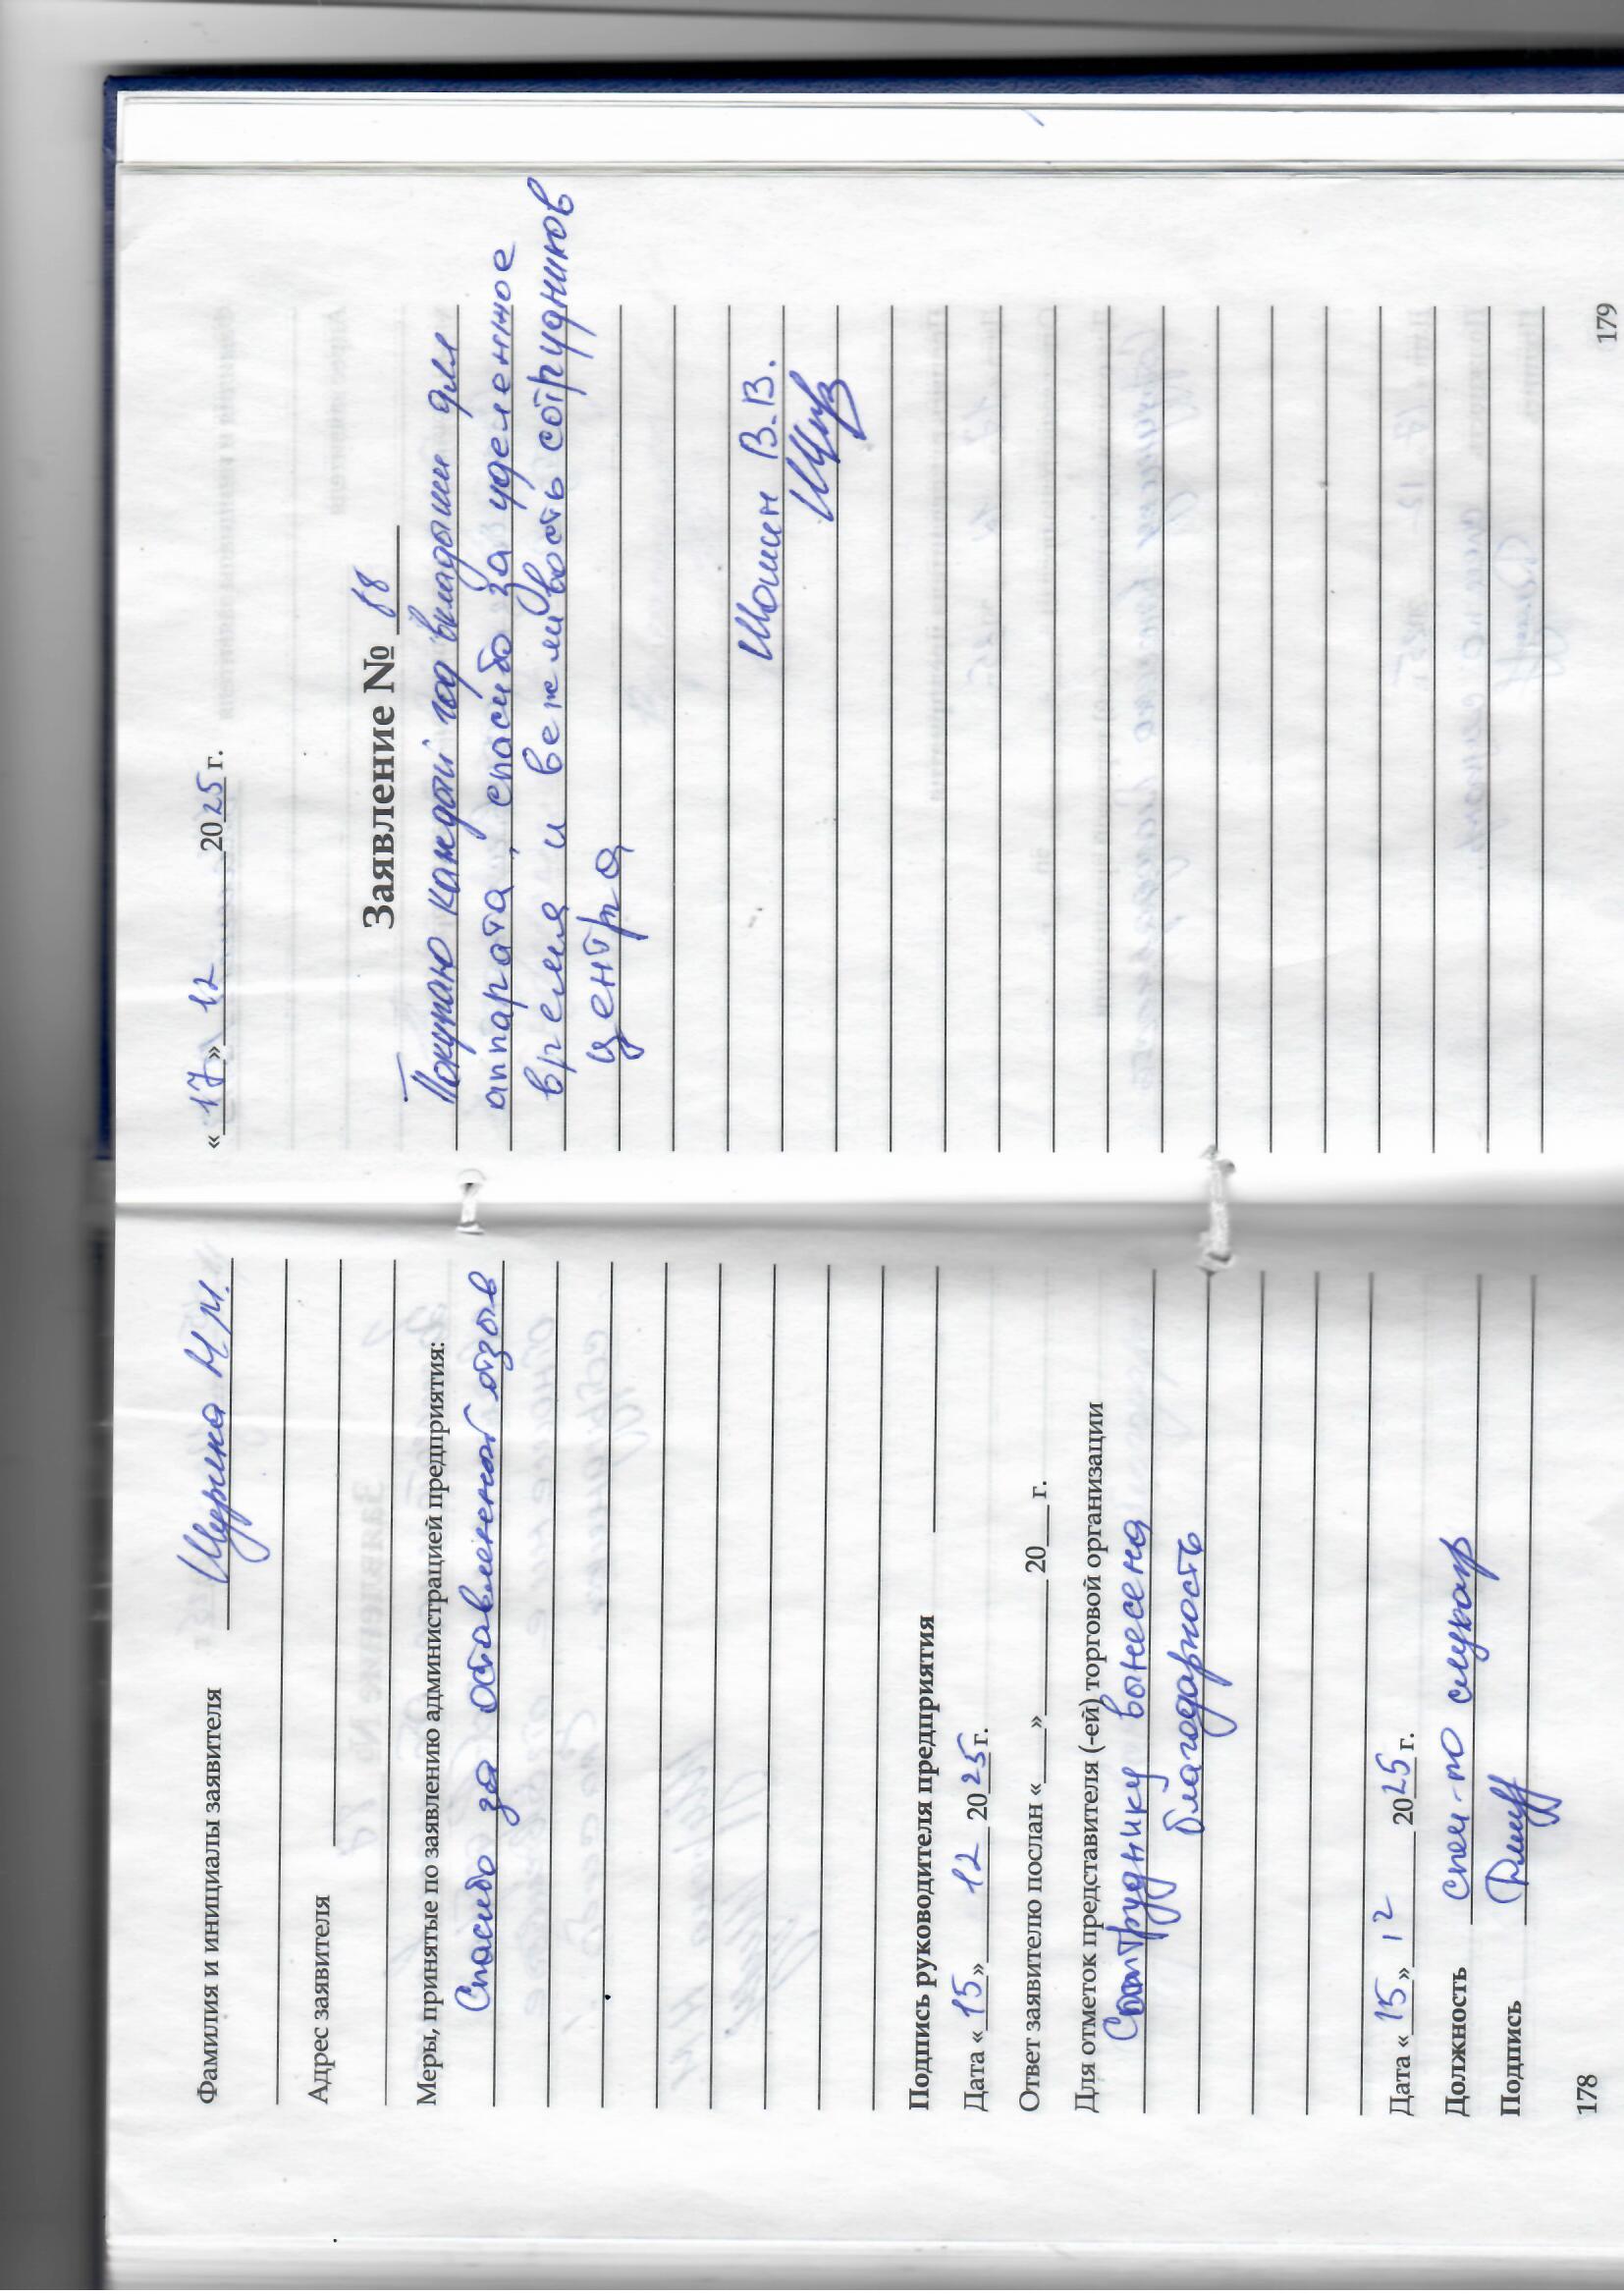 Фамилия и инициалы заявителя Щурина М.И.
Адрес заявителя
Меры, принятые по заявлению администрацией предприятия:
Спасибо за оставленный отзыв
Подпись руководителя предприятия
Дата «15» 12 2025 г.
Ответ заявителю послан «___» ______ 20___ г.
Для отметок представителя (-ей) торговой организации
Сотруднику вынесена
благодарность
Дата «15» 12 2025 г.
Должность спец-по слухопр
Подпись
178
«17» 12 2025 г.
Заявление № 88
Покупаю каждый год вкладыши для
аппарата, спасибо за уделенное
время и вежливость сотрудников
центра
Шошин В.В.
179